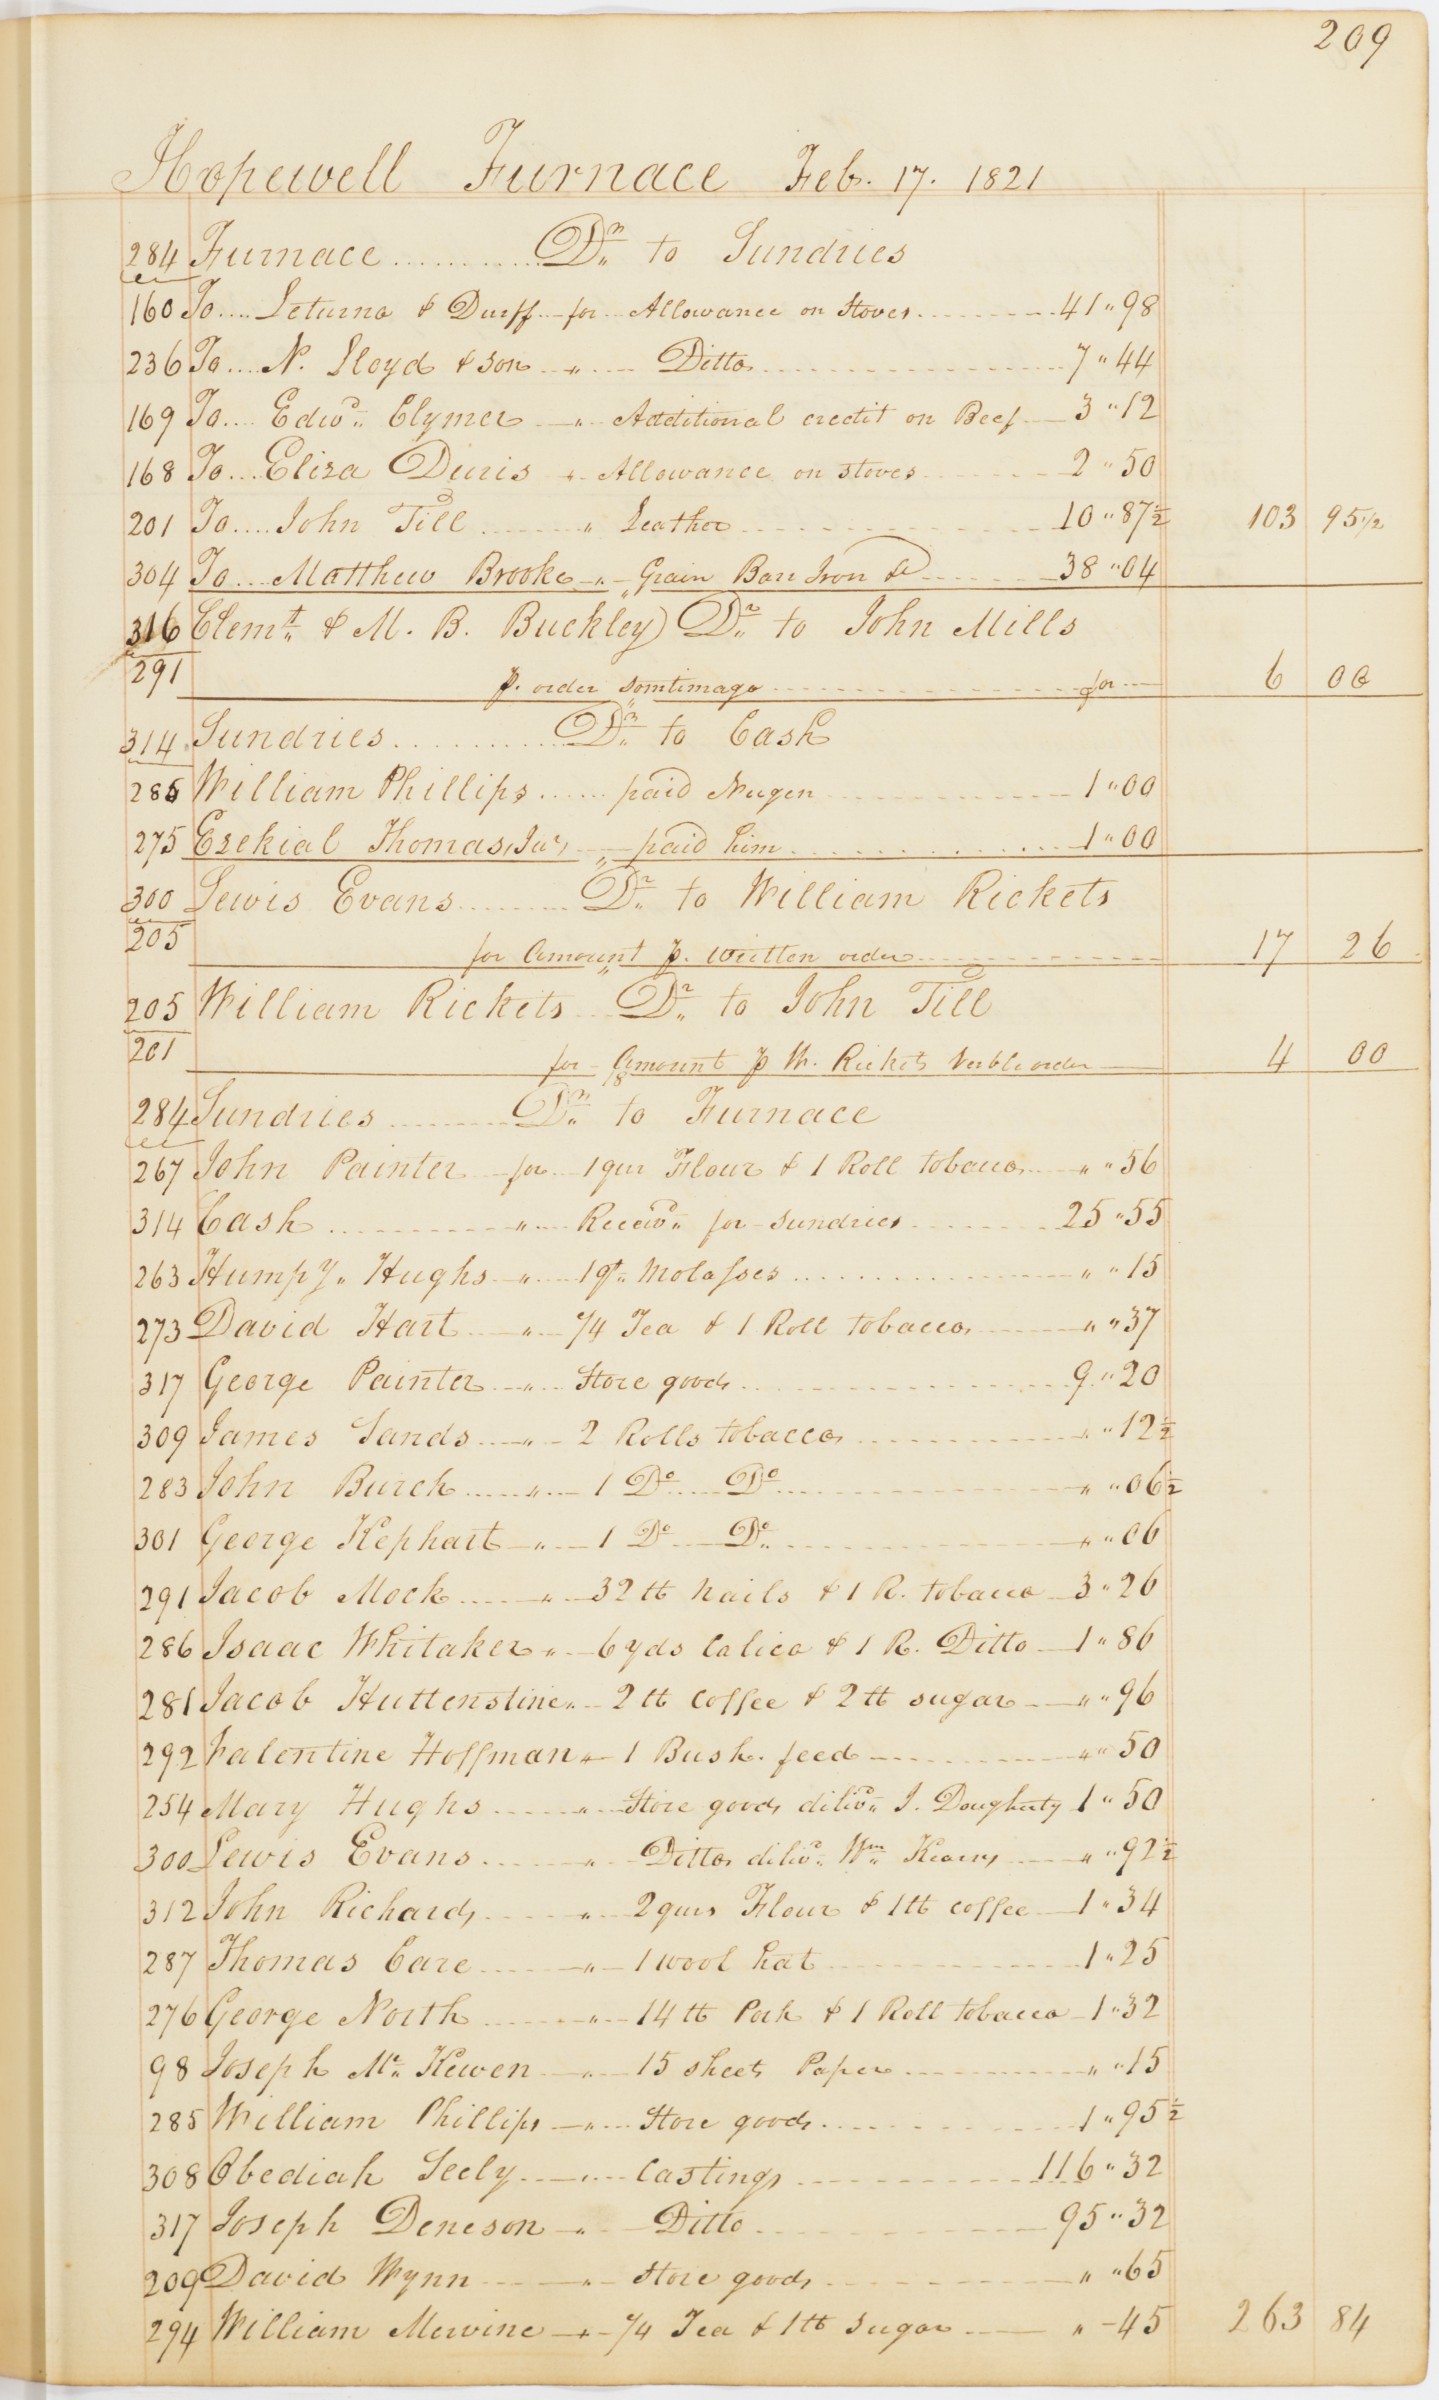 209
Hopewell Furnace Feb. 17. 1821
284 Furnace ............ Dr. to Sundries
160 To.... Leturno & Duff — for — Allowance on Stoves ........ 41 " 98
236 To.... N. Lloyd & son — " — Ditto ........ 7 " 44
169 To.... Edwd. Clymer — " — Additional credit on Beef — 3 " 12
168 To.... Eliza Davis — " — Allowance on stoves ........ 2 " 50
201 To.... John Till ........ " Leather ........ 10 " 87½ 103 95½
304 To.... Matthew Brooke — " — Grain Barr Iron &c ........ 38 " 04
316 Clemt. & M. B. Buckley Dr. to John Mills
291
p. order somtimago ........ for — 6 00
314 Sundries ............ Dr. to Cash
285 William Phillips ...... paid Nugen ........ 1 " 00
275 Ezekial Thomas, Jur, — paid him ........ 1 " 00
300 Lewis Evans ........ Dr. to William Rickets
205
for Amount p. written order ........ 17 26
205 William Rickets Dr. to John Till
201
for Amount p W. Rickets Verble order — 4 00
284 Sundries ........ Dr. to Furnace
267 John Painter — for — 1 qur Flour & 1 Roll tobacco — " " 56
314 Cash ........ " — Receivd. for sundries ........ 25 " 55
263 Humpy. Hughs — " — 1 qt. Molasses ........ " " 15
273 David Hart — " — ¼ Tea & 1 Roll tobacco ........ " " 37
317 George Painter — " — Store goods ........ 9 " 20
309 James Sands — " — 2 Rolls tobacco ........ " " 12½
283 John Burch ...... " — 1 Do .... Do ........ " " 06½
301 George Kephart — " — 1 Do .... Do ........ " " 06
291 Jacob Mock ...... " — 32 lb Nails & 1 R. tobacco — 3 " 26
286 Isaac Whitaker " — 6 yds Calico & 1 R. Ditto — 1 " 86
281 Jacob Huttenstine " — 2 lb Coffee & 2 lb sugar — " " 96
292 Valentine Hoffman " — 1 Bush. feed ........ " " 50
254 Mary Hughs ...... " — Store goods delivd. J. Dougherty 1 " 50
300 Lewis Evans ...... " Ditto delivd. Wm. — " " 92½
312 John Richards ...... " — 2 qurs Flour & 1 lb coffee — 1 " 34
287 Thomas Care ...... " — 1 wool hat ........ 1 " 25
276 George North ...... " — 14 lb Pork & 1 Roll tobacco — 1 " 32
98 Joseph Mc. Kewen — " — 15 sheets Paper ........ " " 15
285 William Phillips — " — Store goods ........ 1 " 95½
308 Obediah Seely — " — Castings ........ 116 " 32
317 Joseph Deneson — " — Ditto ........ 95 " 32
209 David Wynn ...... " — Store goods ........ " " 65
294 William Mervine — " — ¼ Tea & 1 lb Sugar — " — 45 263 84